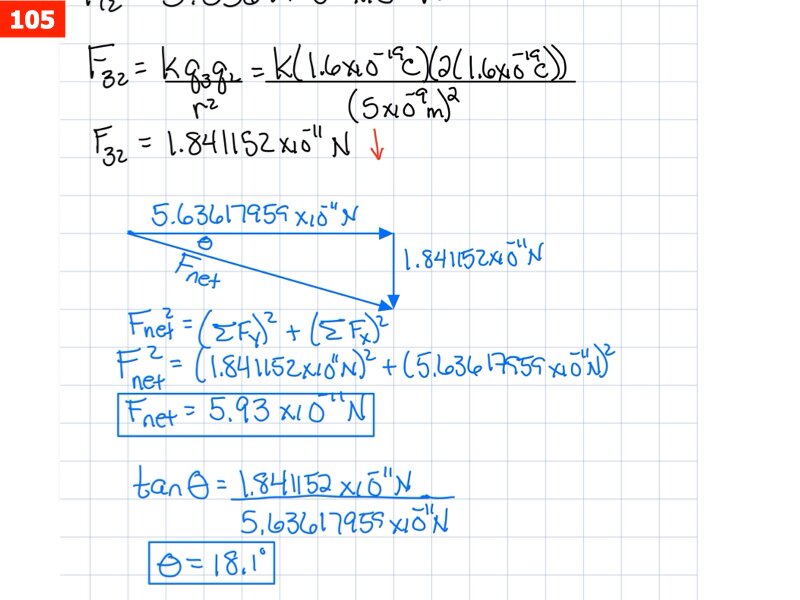 105
F₃₂ = kq₃q₂/r² = k(1.6x10⁻¹⁹C)(2(1.6x10⁻¹⁹C))/(5x10⁻⁹m)²
F₃₂ = 1.841152x10⁻¹¹ N ↓
5.63617959x10⁻¹¹N
θ
Fnet
1.841152x10⁻¹¹N
Fnet² = (ΣFy)² + (ΣFx)²
Fnet² = (1.841152x10⁻¹¹N)² + (5.63617959x10⁻¹¹N)²
Fnet = 5.93 x10⁻¹¹N
tan θ = 1.841152 x10⁻¹¹N
5.63617959x10⁻¹¹N
θ = 18.1°